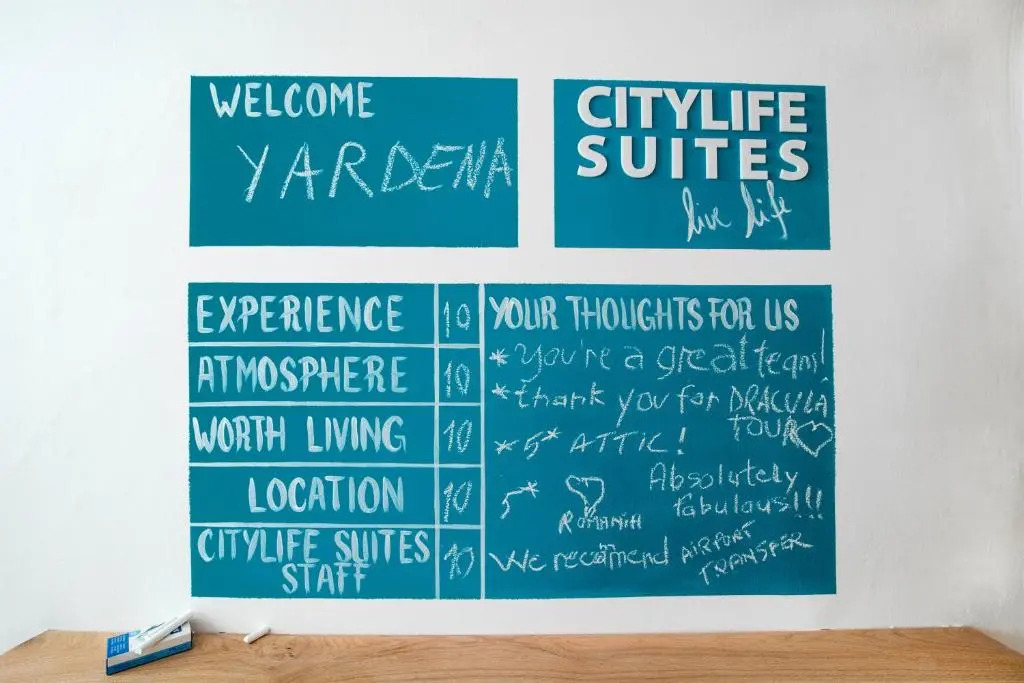 WELCOME
YARDENA
CITYLIFE
SUITES
live life
EXPERIENCE 10
ATMOSPHERE 10
WORTH LIVING 10
LOCATION 10
CITYLIFE SUITES
STAFF 10
YOUR THOUGHTS FOR US
* You're a great team!
* thank you for DRACULA
TOUR
* 5* ATTIC!
Absolutely
fabulous!!!
5*
ROMANIA
We recomend AIRPORT
TRANSFER